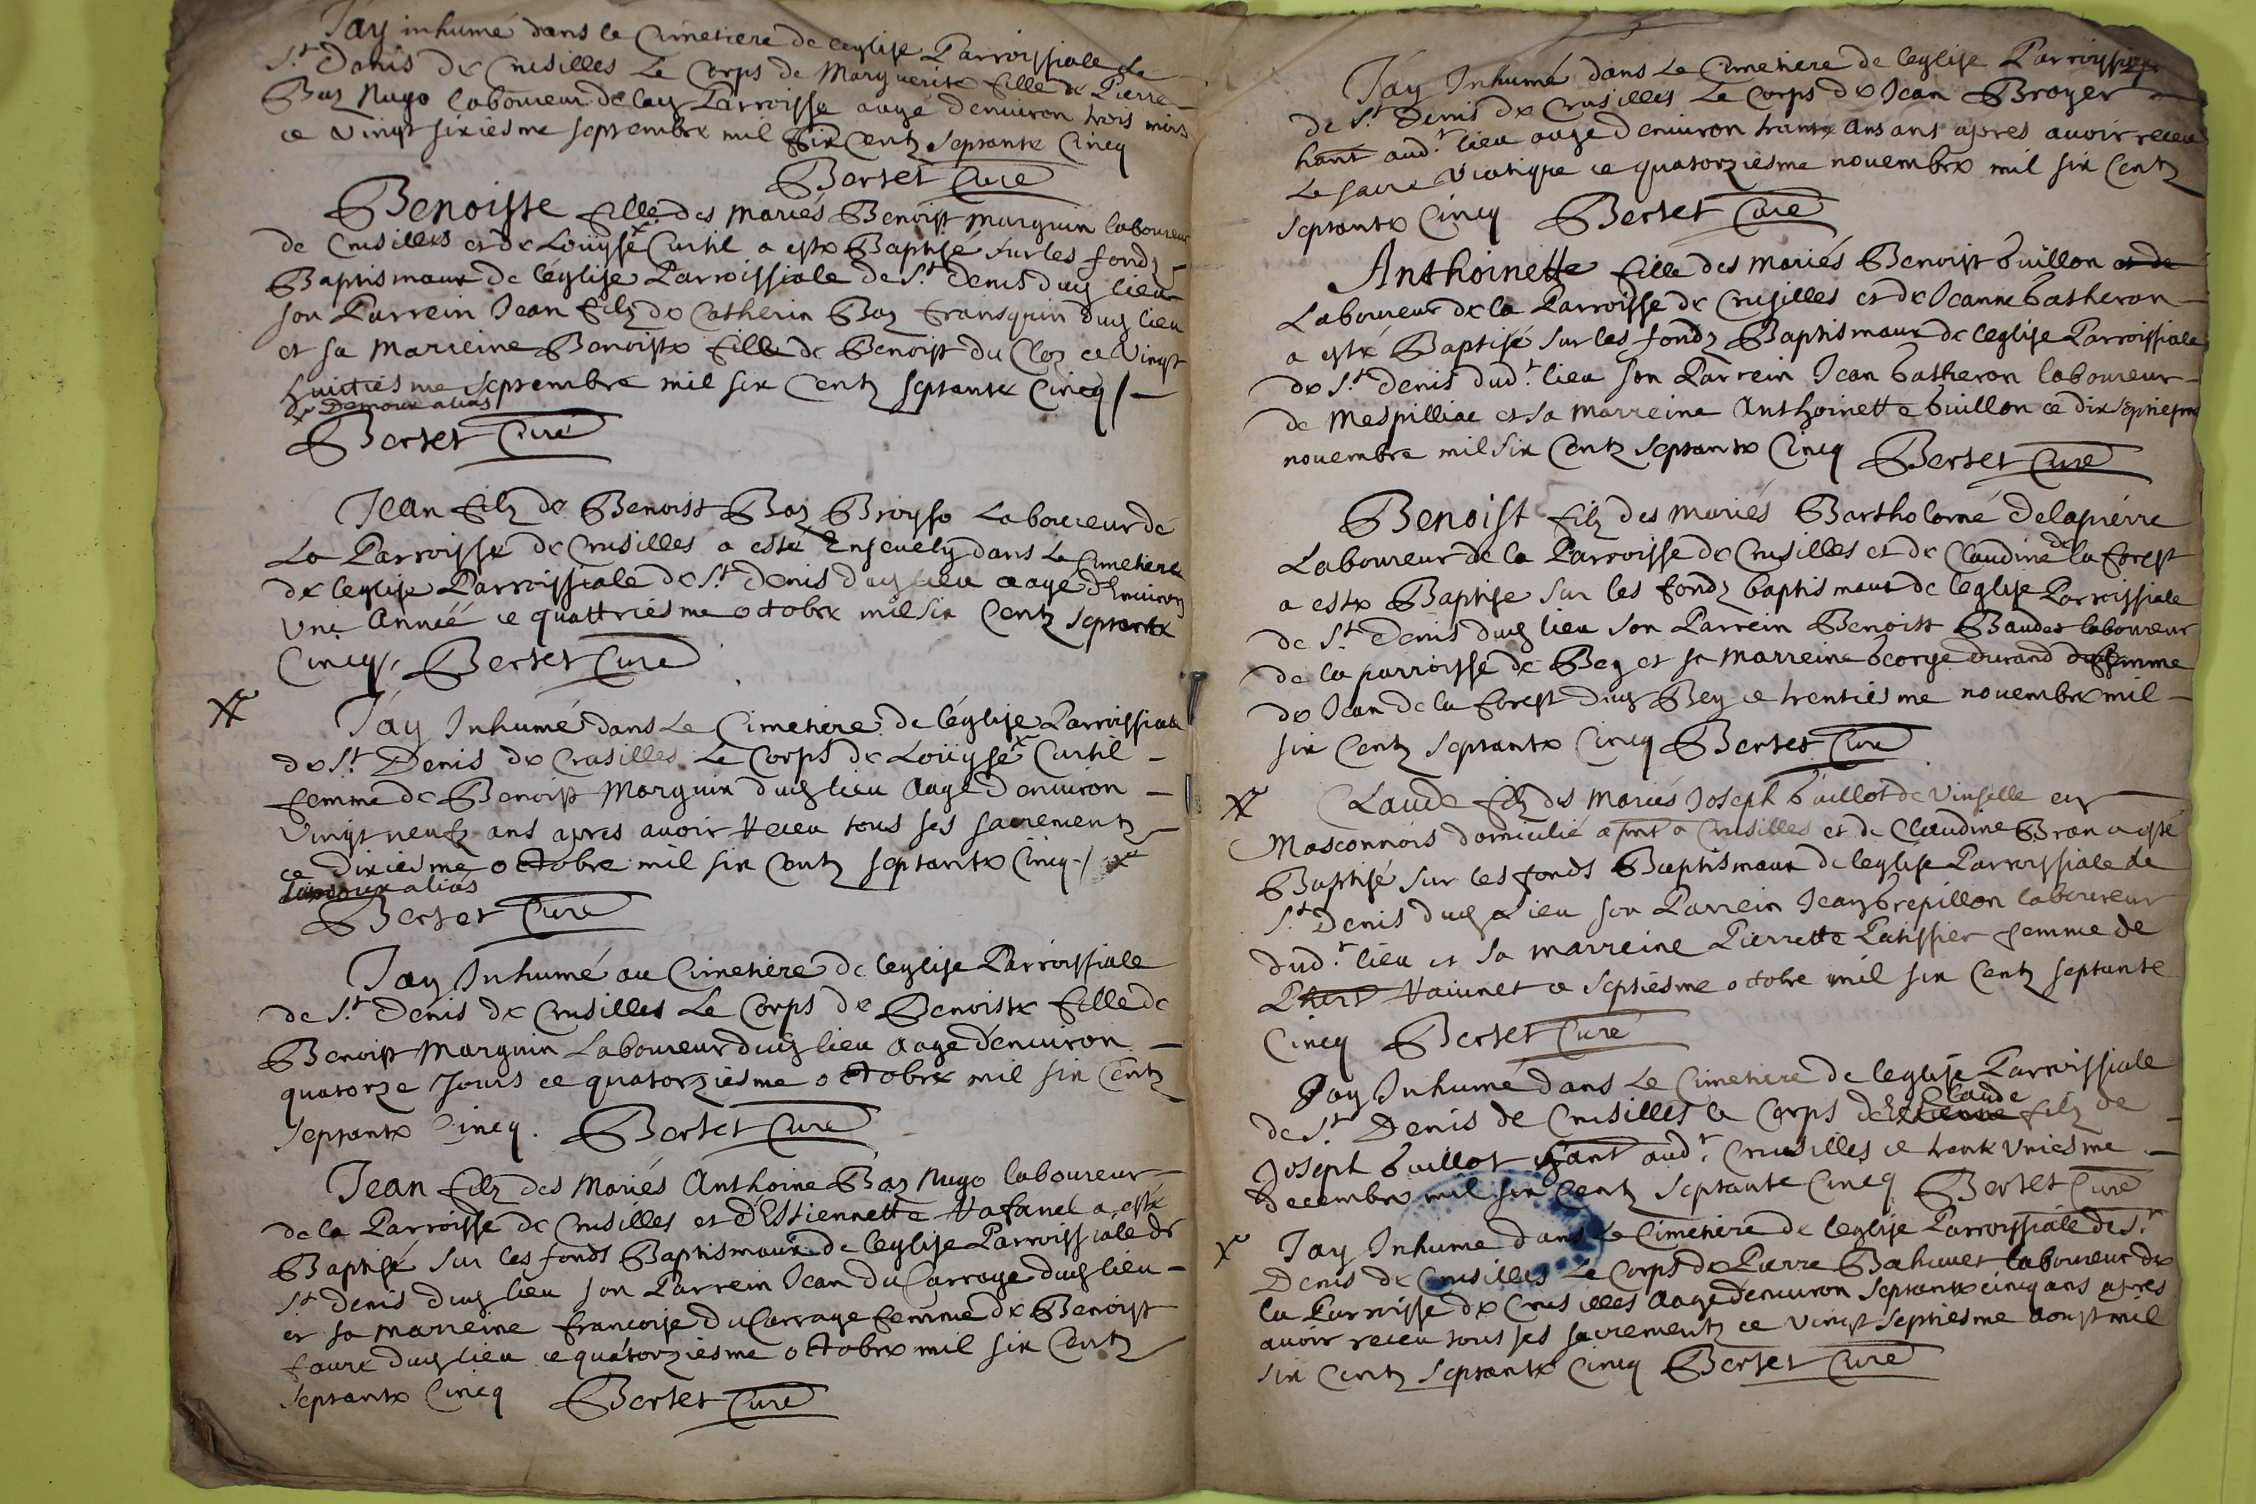 Jay inhumé dans le Cimetiere de leglise Parroissiale de
St Denis de Crusilles Le Corps de Marguerite fille de Pierre
Baz Nugo laboureur de lad Parroisse aagé denuiron trois mois
ce Vingt sixiesme septembre mil six Centz Septante Cincq
Berset Curé
Benoiste fille des mariés Benoist Marguin laboureur
de Crusilles et de Loüyse Curtil a este Baptisé sur les fondz
Baptismaux de léglise Parroissiale de St Denis dud lieu
son Parrein Jean filz de Catherin Baz fransquin dud lieu
et sa Marreine Benoiste fille de Benoist du Cloz ce Vingt
huitiesme septembre mil six Centz septante Cincq
alias
Berset Curé
Jean filz de Benoist Baz Broysso Laboureur de
La Parroisse de Crusilles a esté Ensevely dans Le Cimetiere
de leglise Parroissiale de St Denis dud lieu aagé d'Enuiron
Une Année ce quattriesme octobre mil six Centz septante
Cincq Berset Curé
Jay Inhumé dans Le Cimetiere de léglise Parroissiale
de St Denis de Crusilles Le Corps de Loüysse Curtil
femme de Benoist Marguin dud lieu Aagé denuiron
Vingt neufz ans apres auoir Receu tous ses sacrementz
ce dixiesme octobre mil six Centz septante Cincq
alias
Berset Curé
Jay Inhumé au Cimetiere de leglise Parroissiale
de St Denis de Crusilles Le Corps de Benoiste fille de
Benoist Marguin Laboureur dud lieu Aagé dénuiron
quatorze Jours ce quatorziesme octobre mil six Centz
septante Cincq. Berset Curé
Jean filz des Mariés Anthoine Baz Nugo laboureur
de la Parroisse de Crusilles et d'Estiennette Vafanel a esté
Baptisé sur les fonds Baptismaux de leglise Parroissiale de
St Denis dud lieu son Parrein Jean du Carroge dud lieu
et sa marreine francoise du Carrage femme de Benoist
faure dud lieu ce quatorziesme octobre mil six Centz
septante Cincq Berset Curé
Jay Inhumé dans Le Cimetiere de leglise Parroissiale
de St Denis de Crusilles Le Corps de Jean Broyer
hant audt lieu aagé denuiron trante Ans ans apres auoir receu
Le sacre Viatique ce quatorziesme nouembre mil six Centz
septante Cincq Berset Curé
Anthoinette fille des mariés Benoist Guillon et de
Laboureur de la Parroisse de Crusilles et de Jeanne Gatheron
a esté Baptisé sur les fondz Baptismaux de leglise Parroissiale
de St Denis dudt lieu son Parrein Jean Gatheron laboureur
de Mespilliac et sa marreine Anthoinette Guillon ce dix septiesme
nouembre mil six Centz septante Cincq Berset Curé
Benoist filz des mariés Bartholomé Delapierre
Laboureur de la Parroisse de Crusilles et de Claudine de la forest
a este Baptise sur les fondz baptismaux de leglise Parroissiale
de St Denis dud lieu son Parrein Benoist Baudet laboureur
de la parroisse de Bey et sa marreine George durand femme
de Jean de la forest dud Bey ce trentiesme nouembre mil
six Centz septante Cincq Berset Curé
Claude filz des Mariés Joseph Guillot de Vinselle en
Masconnois domicilié apnt a Crusilles et de Claudine Bron a esté
Baptisé sur les fonds Baptismaux de leglise Parroissiale de
St Denis dud lieu son Parrein Jean Grepillon laboureur
dudt lieu et sa marreine Pierrette Patissier femme de
Vaiunet ce septiesme octobre mil six Centz septante
Cincq Berset Curé
Jay Inhumé dans Le Cimetiere de leglise Parroissiale
de St Denis de Crusilles le Corps de Estienne Claude filz de
Joseph Guillot hant audt Crusilles ce trente Vniesme
decembre mil six Centz septante Cincq Berset Curé
Jay Inhume dans Le Cimetiere de leglise Parroissiale de St
Denis de Crusilles Le Corps de Pierre Bahuet laboureur de
la Parroisse de Crusilles Aagé dénuiron septante cincq ans apres
auoir receu tous ses sacrementz ce vingt septiesme Aoust mil
six Centz septante Cincq Berset Curé